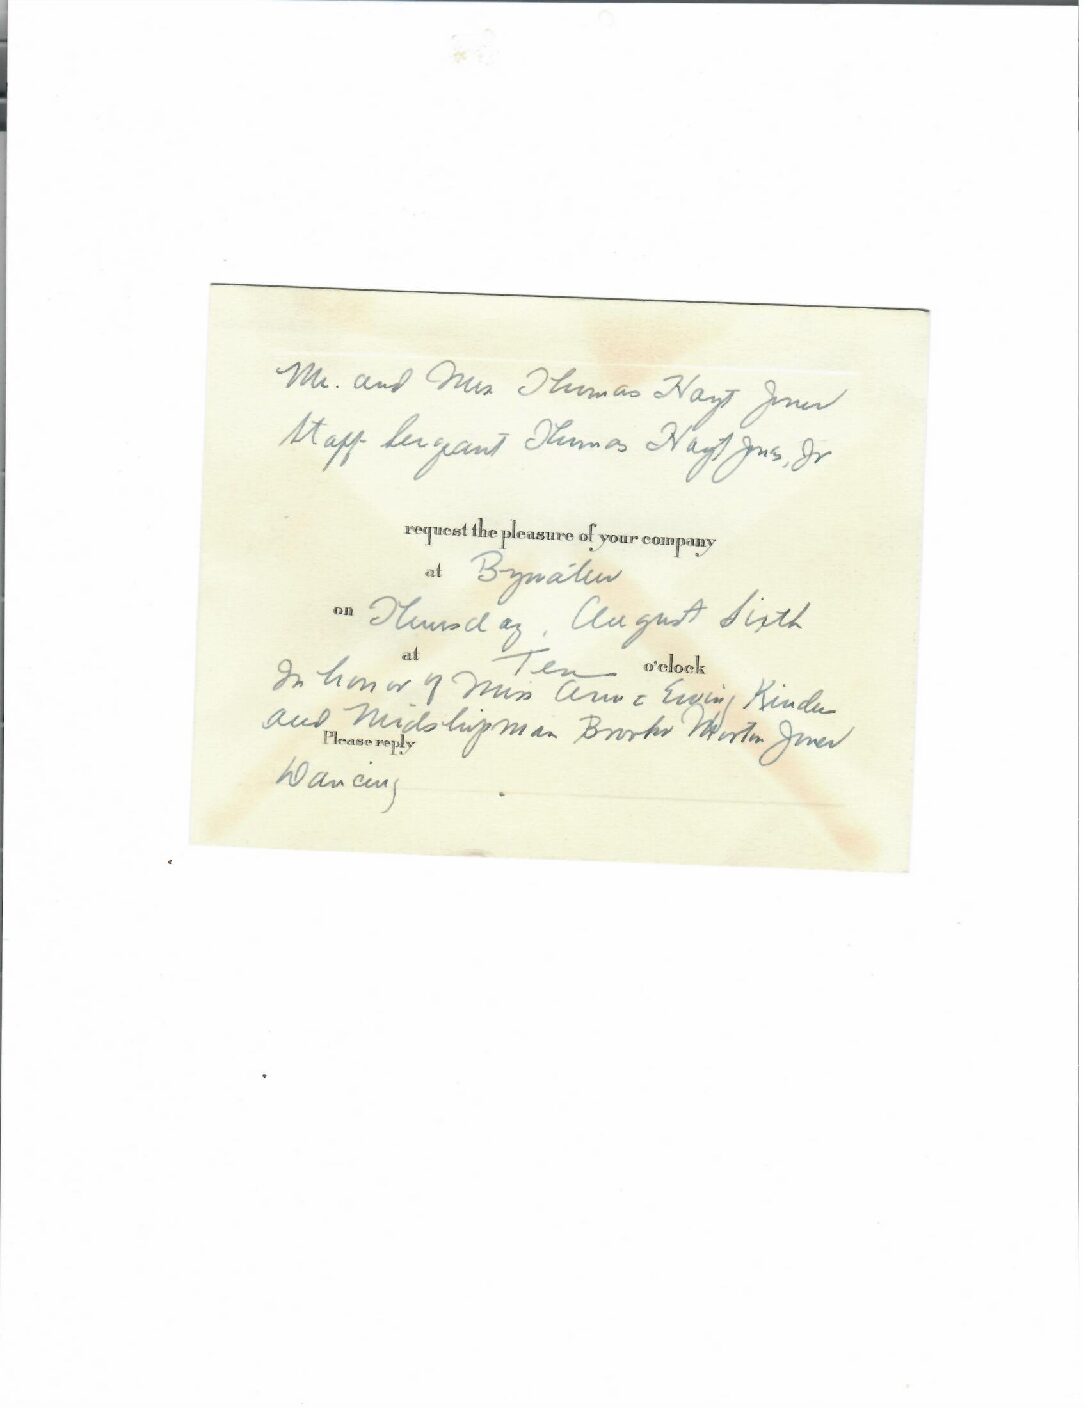 Mr. and Mrs Thomas Hoyt Jones
Staff Sergeant Thomas Hoyt Jones, Jr
request the pleasure of your company
at Bywater
on Thursday, August Sixth
at Ten o'clock
In honor of Miss Anne Ewing Kinder
and Midshipman Brooke Morton Jones
Please reply
Dancing